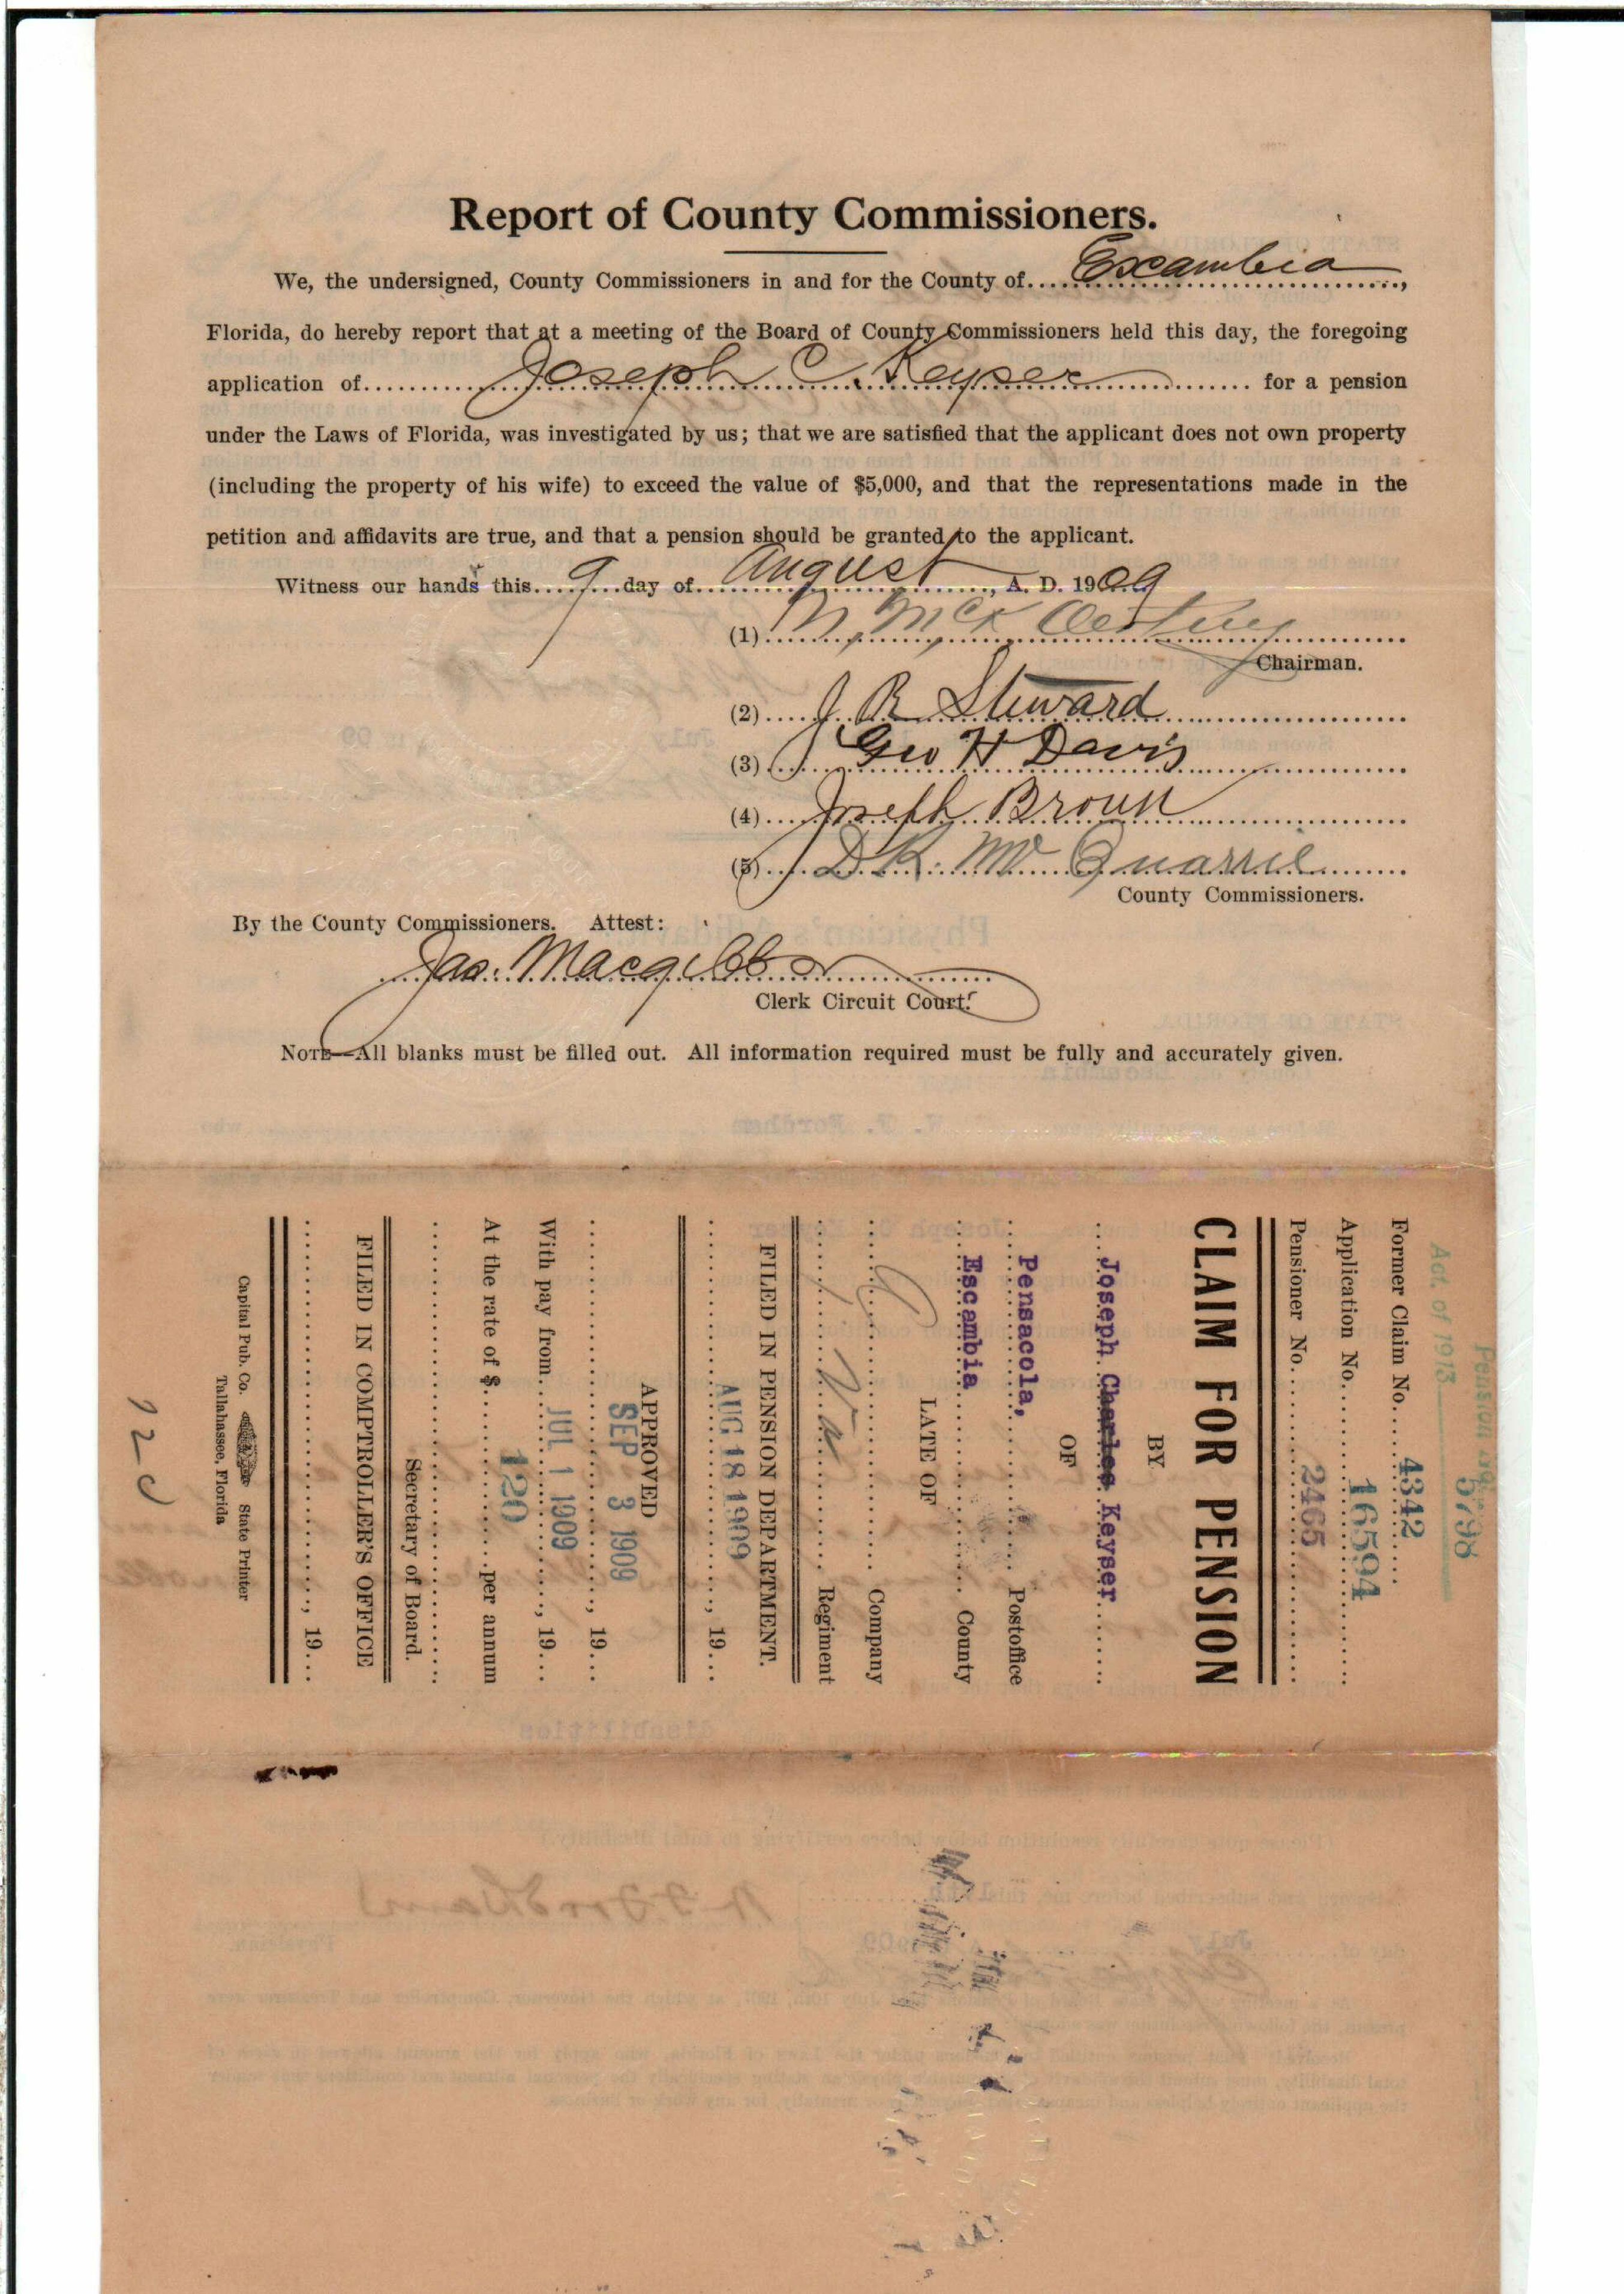 Report of County Commissioners.
We, the undersigned, County Commissioners in and for the County of....Escambia....,
Florida, do hereby report that at a meeting of the Board of County Commissioners held this day, the foregoing
application of....Joseph C. Keyser.... for a pension
under the Laws of Florida, was investigated by us; that we are satisfied that the applicant does not own property
(including the property of his wife) to exceed the value of $5,000, and that the representations made in the
petition and affidavits are true, and that a pension should be granted to the applicant.
Witness our hands this....9....day of....August...., A. D. 1909
(1)
Chairman.
(2)....J. R. Steward
(3)....Geo H Davis
(4)....Joseph Brown
(5)....D. K. Mc Quarrie
County Commissioners.
By the County Commissioners. Attest:
Jas. Macgibbon
Clerk Circuit Court.
NOTE—All blanks must be filled out. All information required must be fully and accurately given.
Act. of 1913
5798
Former Claim No....4342....
Application No....16594....
Pensioner No....2465....
CLAIM FOR PENSION
BY
Joseph Charles Keyser
OF
Pensacola,.... Postoffice
Escambia.... County
LATE OF
.... Company
1 Va.... Regiment
FILED IN PENSION DEPARTMENT.
AUG 18 1909...., 19...
APPROVED
SEP 3 1909...., 19...
With pay from....JUL 1 1909...., 19...
At the rate of $....120....per annum
Secretary of Board.
FILED IN COMPTROLLER'S OFFICE
...., 19...
Capital Pub. Co. State Printer
Tallahassee, Florida